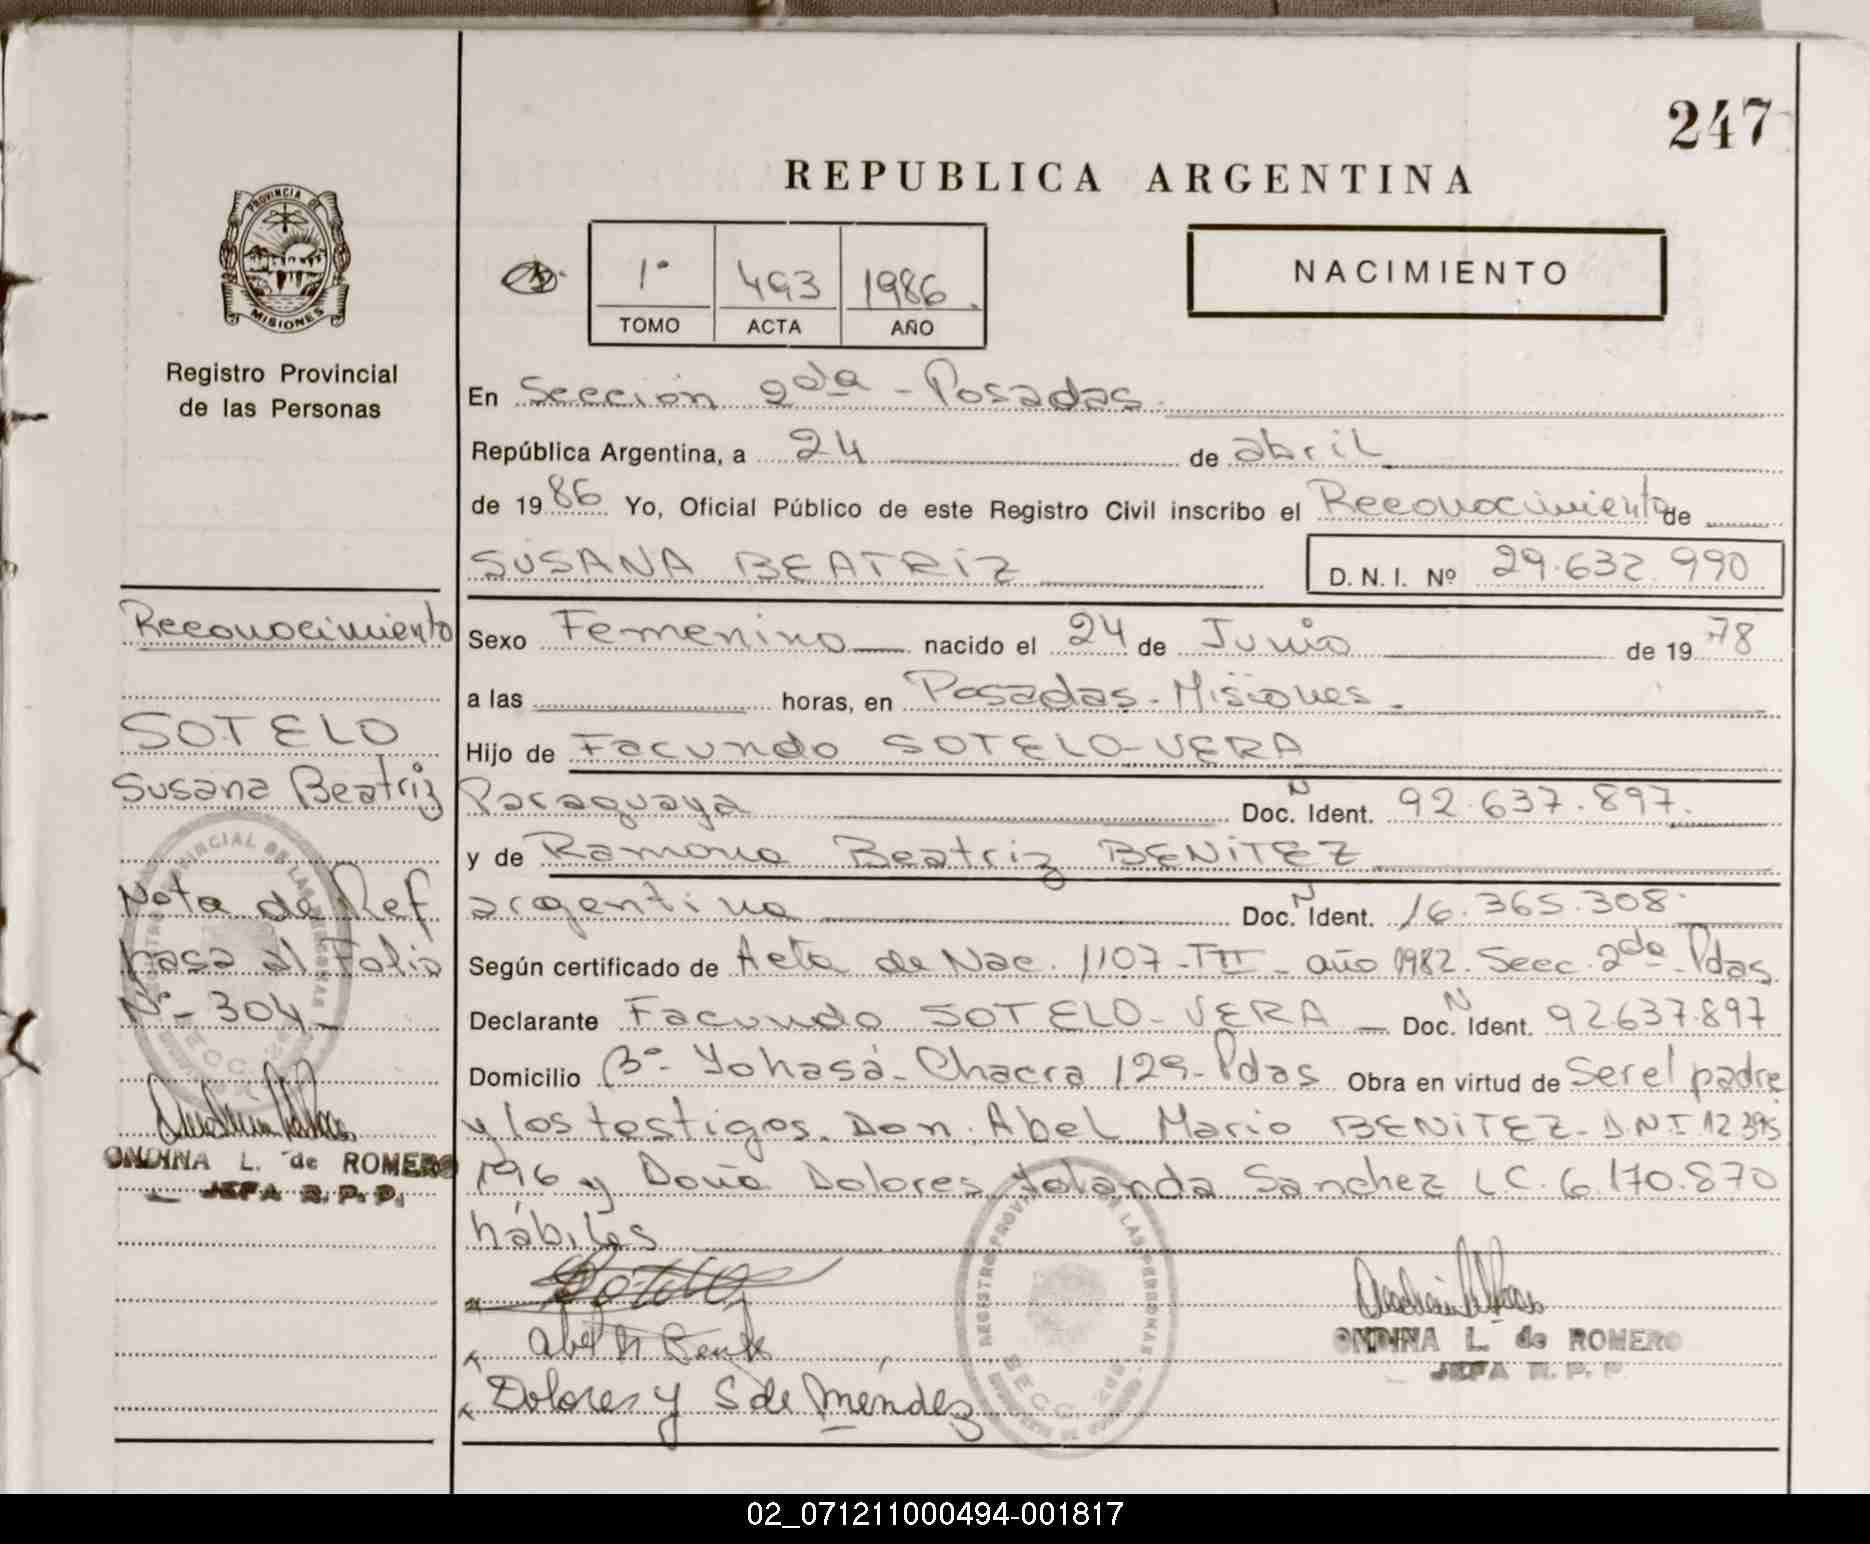 247
REPUBLICA ARGENTINA
PROVINCIA DE
MISIONES
Registro Provincial
de las Personas
1º 493 1986.
TOMO ACTA AÑO
NACIMIENTO
En Sección 2da - Posadas
República Argentina, a 24 de abril
de 1986 Yo, Oficial Público de este Registro Civil inscribo el Reconocimiento de
SUSANA BEATRIZ
D. N. I. Nº 29.632.990
Sexo Femenino nacido el 24 de Junio de 1978
a las horas, en Posadas - Misiones.
Hijo de Facundo SOTELO-VERA
Paraguaya Doc. N Ident. 92.637.897.
y de Ramona Beatriz BENITEZ
argentina Doc. N Ident. 16.365.308.
Según certificado de Acta de Nac. 1107-TIII- año 1982. Secc. 2da Pdas.
Declarante Facundo SOTELO-VERA Doc. N Ident. 92637.897
Domicilio Bº- Yohasá- Chacra 129- Pdas Obra en virtud de Ser el padre
y los testigos. Don. Abel Mario BENITEZ- D.N.I. 12.395
196 y Doña Dolores Yolanda Sanchez L.C. 6.170.870
hábiles
Reconocimiento
SOTELO
Susana Beatriz
Nota de Ref
pasa al Folio
Nº- 304-
ONDINA L. de ROMERO
JEFA R. P. P.
Dolores Y S de Méndez
REGISTRO PROVINCIAL DE LAS PERSONAS
SECC. 2da.
ONDINA L. de ROMERO
JEFA R. P. P.
02_071211000494-001817